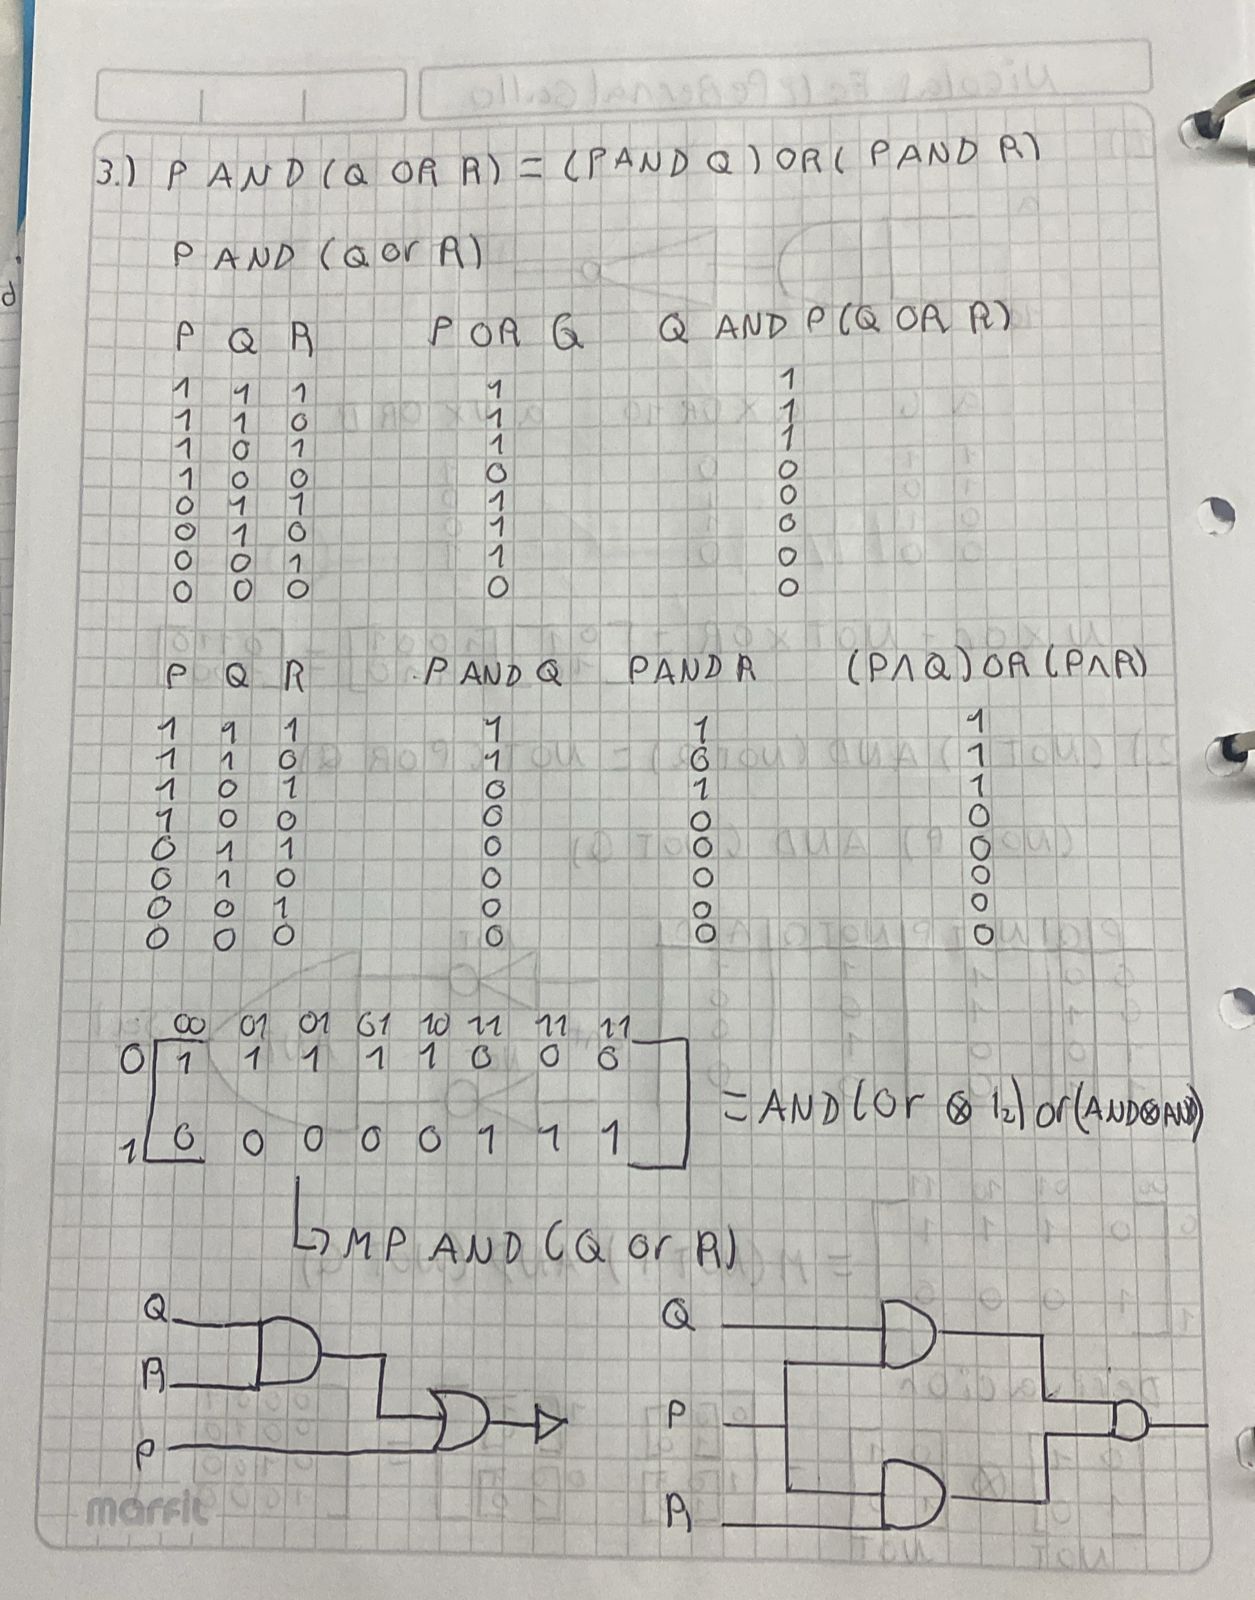 3.) P AND (Q OR R) = (P AND Q) OR (P AND R)
P AND (Q or R)
P Q R P OR Q Q AND P(Q OR R)
1 1 1 1 1
1 1 0 1 1
1 0 1 1 1
1 0 0 0 0
0 1 1 1 0
0 1 0 1 0
0 0 1 1 0
0 0 0 0 0
P Q R P AND Q P AND R (P∧Q) OR (P∧R)
1 1 1 1 1 1
1 1 0 1 0 1
1 0 1 0 1 1
1 0 0 0 0 0
0 1 1 0 0 0
0 1 0 0 0 0
0 0 1 0 0 0
0 0 0 0 0 0
00 01 01 01 10 11 11 11
0 1 1 1 1 1 0 0 0
= AND (or ⊗ 12) or (AND⊗AND)
1 0 0 0 0 0 1 1 1
↳ MP AND (Q or R)
Q Q
R
P P
R
marfil